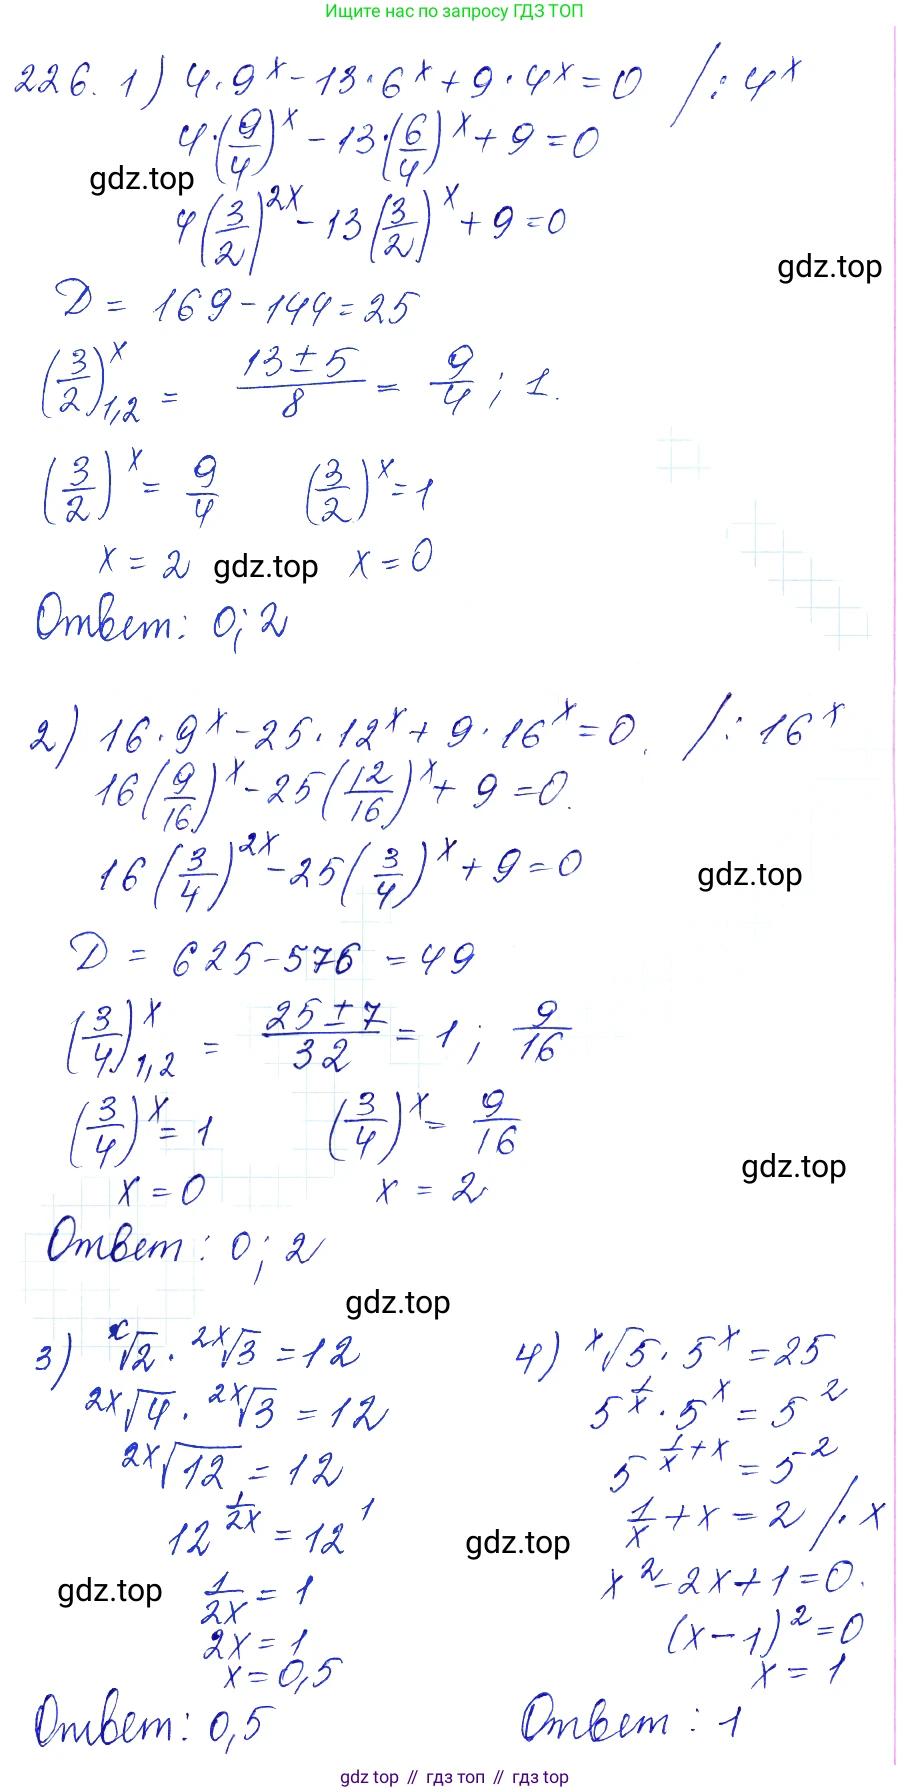 Ищите нас по запросу ГДЗ ТОП
226. 1) 4·9^x - 13·6^x + 9·4^x = 0 /: 4^x
4·(9/4)^x - 13·(6/4)^x + 9 = 0
gdz.top
4(3/2)^2x - 13(3/2)^x + 9 = 0
gdz.top
D = 169 - 144 = 25
(3/2)^x 1,2 = (13 ± 5)/8 = 9/4; 1.
(3/2)^x = 9/4 (3/2)^x = 1
x = 2 gdz.top x = 0
Ответ: 0; 2
2) 16·9^x - 25·12^x + 9·16^x = 0. /: 16^x
16(9/16)^x - 25(12/16)^x + 9 = 0.
16(3/4)^2x - 25(3/4)^x + 9 = 0
gdz.top
D = 625 - 576 = 49
(3/4)^x 1,2 = (25 ± 7)/32 = 1; 9/16
(3/4)^x = 1 (3/4)^x = 9/16
gdz.top
x = 0 x = 2
Ответ: 0; 2
gdz.top
3) ^x√2 · ^2x√3 = 12
^2x√4 · ^2x√3 = 12
^2x√12 = 12
12^(1/2x) = 12^1
gdz.top
1/2x = 1
2x = 1
x = 0,5
Ответ: 0,5
4) ^x√5 · 5^x = 25
5^(1/x) · 5^x = 5^2
5^(1/x + x) = 5^2
1/x + x = 2 /· x
gdz.top
x^2 - 2x + 1 = 0.
(x - 1)^2 = 0
x = 1
Ответ: 1
gdz top // гдз топ // gdz top